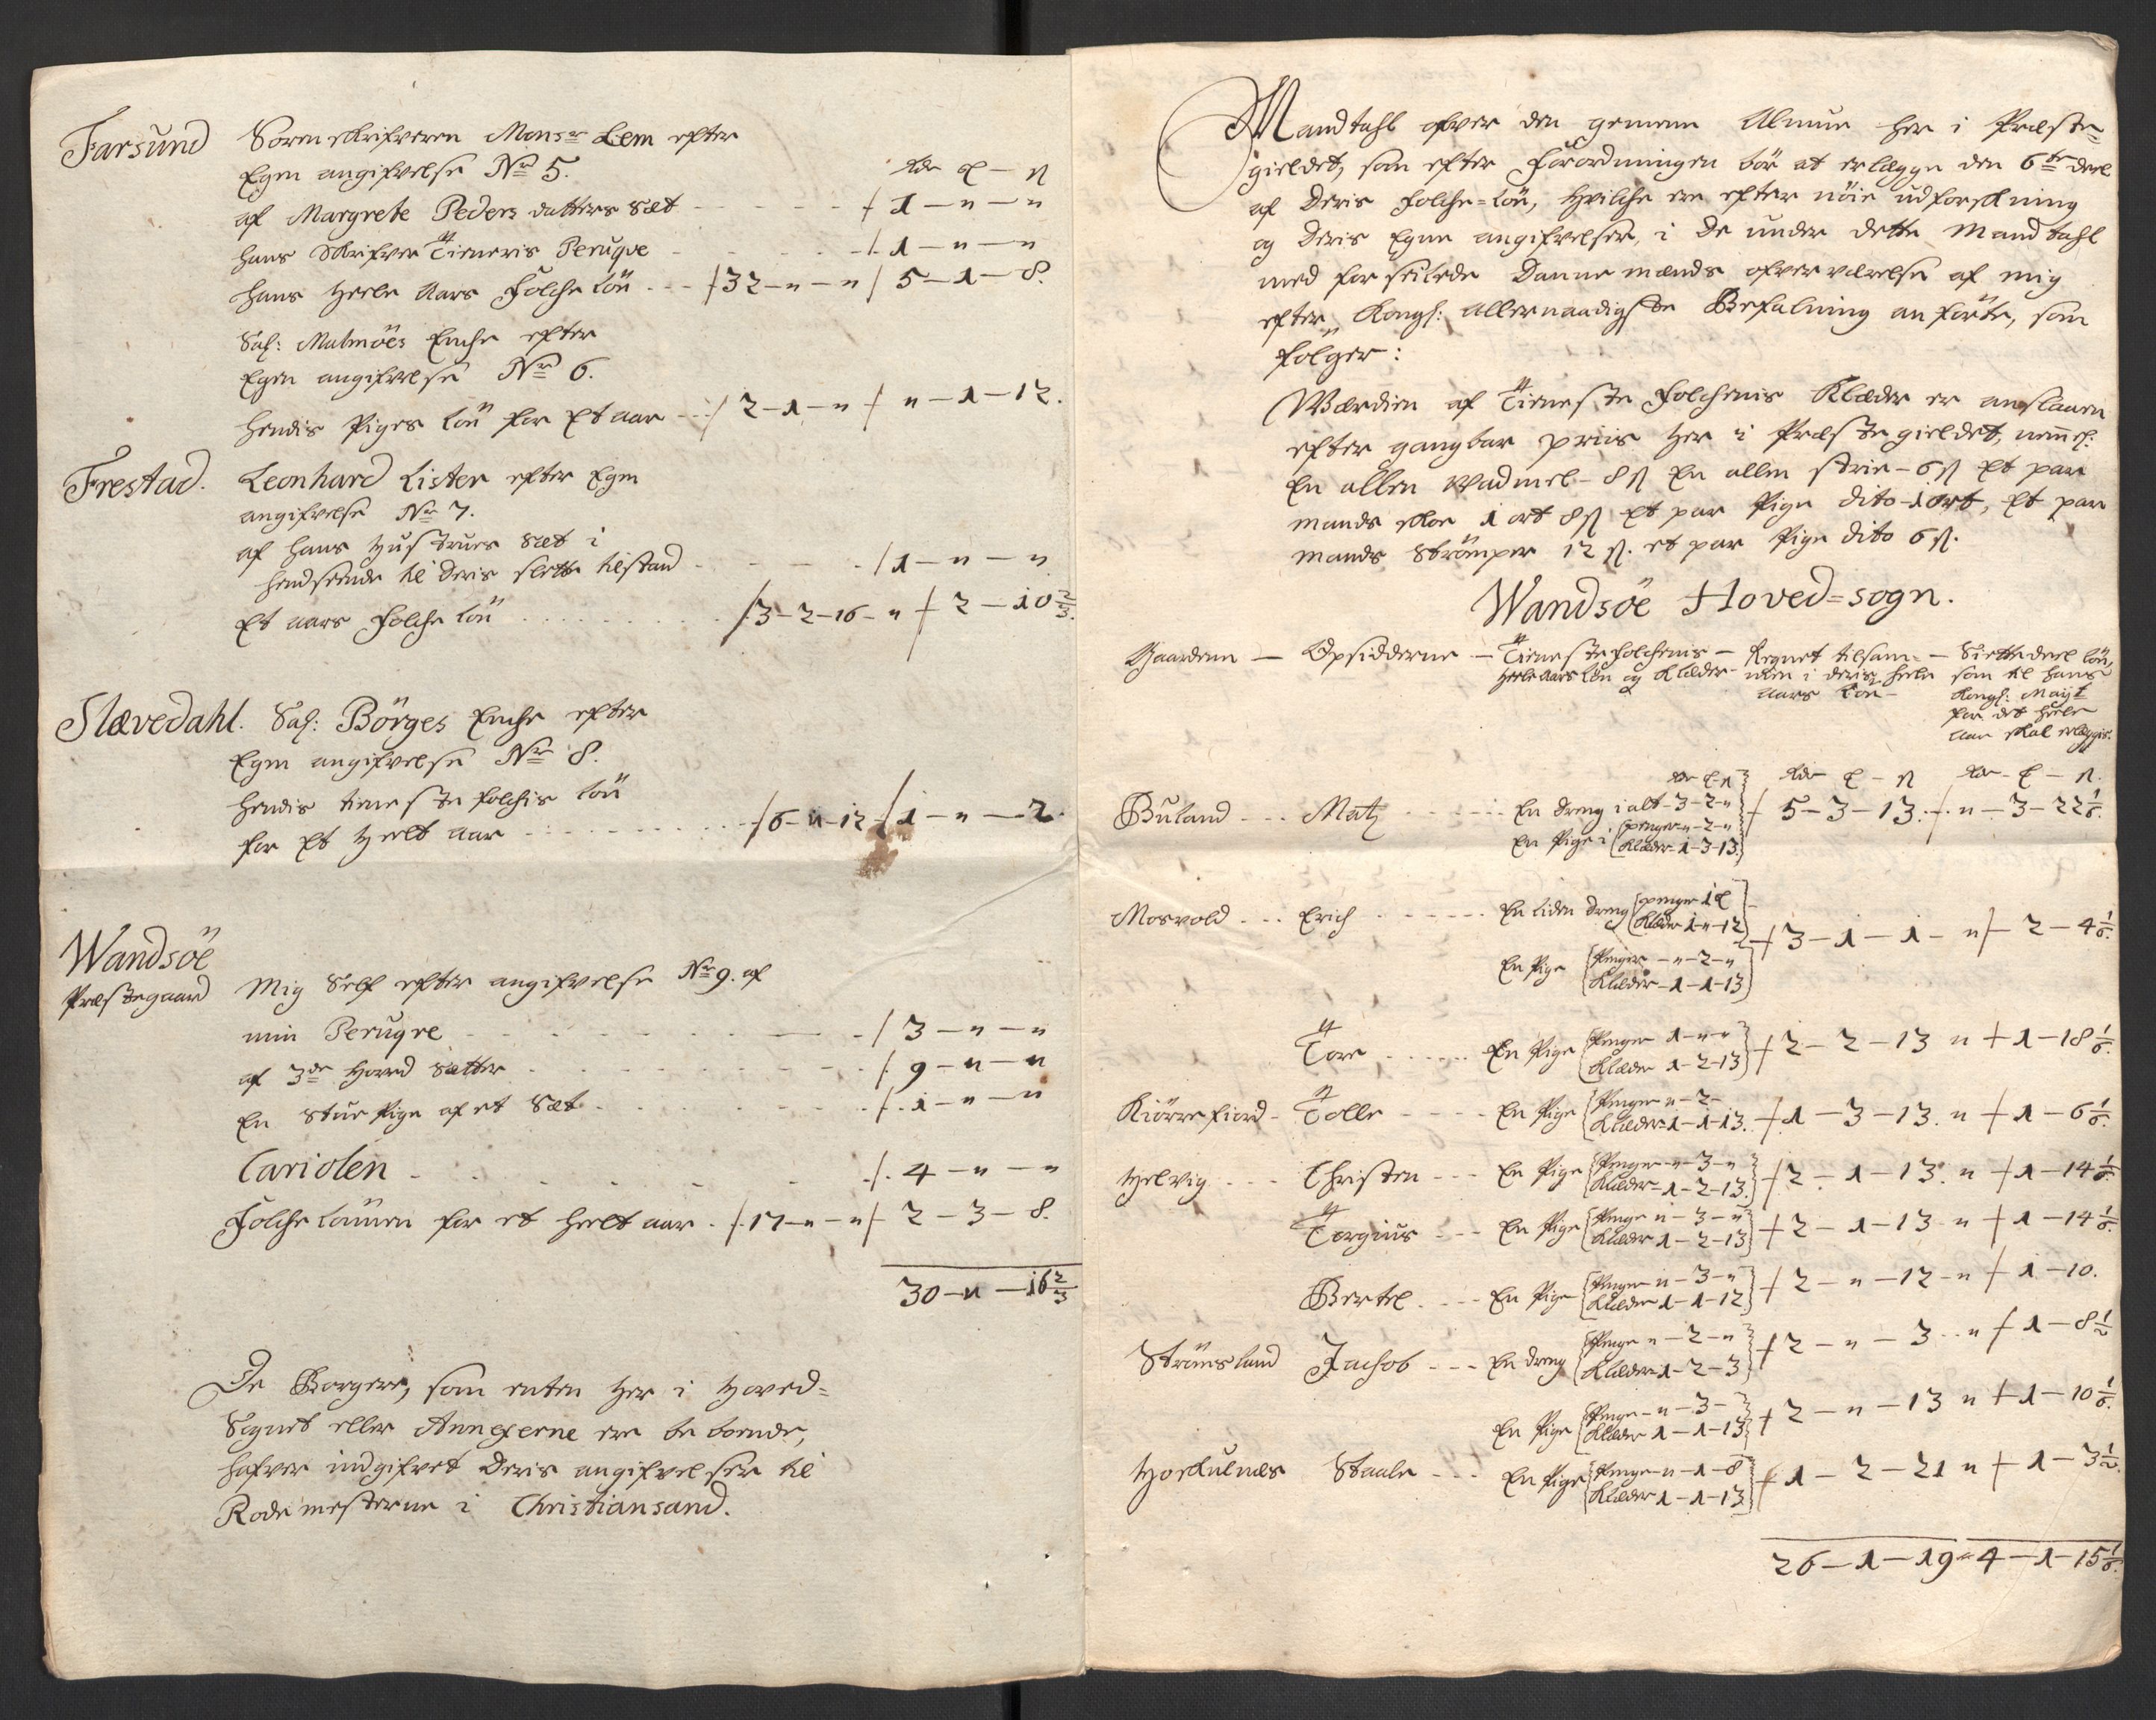 Farsund Sorenskrifveren Monsr Lem efter
Egen angifvelse No 5.
Rdr ℓ – ß
af Margrete Peders datters Sæt - - - - / 1 – " – "
hans Skrifver Tieneris Peruqve - - - / 1 – " – "
hans heele Aars Folche Lön - - - / 32 – " – " / 5 – 1 – 8.
Sal: Malmöes Enche efter
Egen angifvelse No 6.
hendis Piges Lön for Et aar - - / 2 – 1 – " / " – 1 – 12.
Frestad. Leonhard Lister efter Egen
angifvelse No 7.
af hans Hustrues Sæt i
henseende til deris slette tilstand - - - - / 1 – " – "
Et aars Folche Lön . . . . . . . / 3 – 2 – 16 – " / 2 – 10 2/3.
Slævedahl. Sal: Börges Enche efter
Egen angifvelse No 8.
hendis tieneste folchis Lön
for Et heelt aar - - - - - / 6 – " – 12 / 1 – " – 2.
Wandsöe
Præstegaard Mig Self efter angifvelse No 9. af
min Peruqve - - - - - - / 3 – " – "
af 3de Hoved Sætter - - - - - /. 9 – " – "
En Stue Pige af et Sæt - - - - - /. 1 – " – "
Cariolen - - - - - /. 4 – " – "
Folche Lönnen for et heelt aar . / 17 – " – " / 2 – 3 – 8.
30 – " – 16 2/3
De Borgere, som enten her i Hoved=
Sognet eller Annexerne ere be boende,
hafver indgifvet deris angifvelser til
Rodemesterne i Christiansand.
Mandtahl ofver den gemene Almue her i Præste=
gieldet, som efter Forordningen bör at erlægge den 6te deel
af deris Folche=Lön, hvilche ere efter nöie udforskning
og deris Egne angifvelser, i de under dette Mandtahl
med forseilede Danne mænds ofverværelse af mig
efter Kongl: Allernaadigste Befalning anförte, som
fölger:
Værdien af Tieneste Folchenis Klæder er anslaaen
efter gangbar priis her i Præstegieldet, nemel:
En allen Wadmel - 8 ß En allen Strie - 6 ß Et par
mands skoe 1 ort 8 ß Et par Pige dito - 1 ort, Et par
mands Strömper 12 ß. et par Pige dito 6 ß.
Wandsöe Hoved=sogn.
Gaardene — Opsidderne — Tieneste folchenis — Regnet tilsam= — Siettedeel Lön,
heele Aars Lön og Klæder - men i deris heele som til hans
Aars Lön - Kongl: Mayt
for det heele
aar skal erlægges.
Rdr ℓ - ß Rdr ℓ – ß Rdr - ℓ – ß.
Buland - - - Matz - - - - En dreng i alt - 3 – 2 – " / 5 – 3 – 13. / " – 3 – 22 1/6.
En Pige i penger " – 2 – "
Klæder 1 – 3 – 13
Mosvold - - - Erich - - - - - En liden dreng penger 1 ℓ
Klæder 1 – " – 12 / 3 – 1 – 1 – " / 2 – 4 1/6.
En Pige Penger – " – 2 – "
Klæder – 1 – 1 – 13
Tore - - - - - En Pige Penger 1 – " – " / 2 – 2 – 13 " / 1 – 18 1/6.
Klæder 1 – 2 – 13
Kiörrefiord - Tolle - - - - En Pige Penger " – 2 –
Klæder 1 – 1 – 13. / 1 – 3 – 13. " / 1 – 6 1/6.
Helvig - - - Christen - - - En Pige Penger – " – 3 – "
Klæder – 1 – 2 – 13. / 2 – 1 – 13. " / 1 – 14 1/6.
Torgius - - - En Pige Penger " – 3 – "
Klæder 1 – 2 – 13 / 2 – 1 – 13 " / 1 – 14 1/6.
Bertel - - - En Pige Penger " – 3 – "
Klæder 1 – 1 – 12 / 2 – " – 12 – " / 1 – 10.
Strömsland Jachob - - - En dreng Penge " – 2 – "
Klæder 1 – 2 – 3 / 2 – " – 3 - - " / 1 – 8 1/2
En Pige Penge – " – 3 –
Klæder 1 – 1 – 13 / 2 – " – 13 " / 1 – 10 1/6.
Hoskulnæs Staale - - - En Pige Penge – " – 1 – 8
Klæder 1 – 1 – 13 / 1 – 2 – 21 " / 1 – 3 1/2.
26 – 1 – 19 – 4 – 1 – 15 1/6.